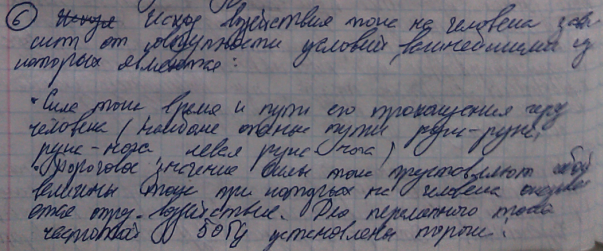 6 Исход Исход воздействия тока на человека зави
сит от совокупности условий, важнейшими из
которых являются:
• Сила тока время и пути его прохождения через
человека (Наиболее опасные пути рука-рука,
рука-нога левая рука-нога)
• Пороговое значение силы тока представляют собой
величины тока при которых на человека оказыва
ется отриц. воздействие. Для переменного тока
частотой 50Гц установлены пороги: